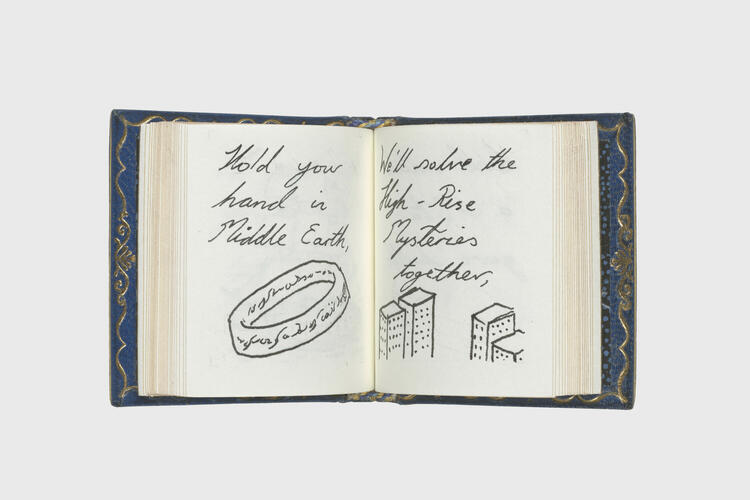 Hold your
hand in
Middle Earth,
We'll solve the
High-Rise
Mysteries
together,